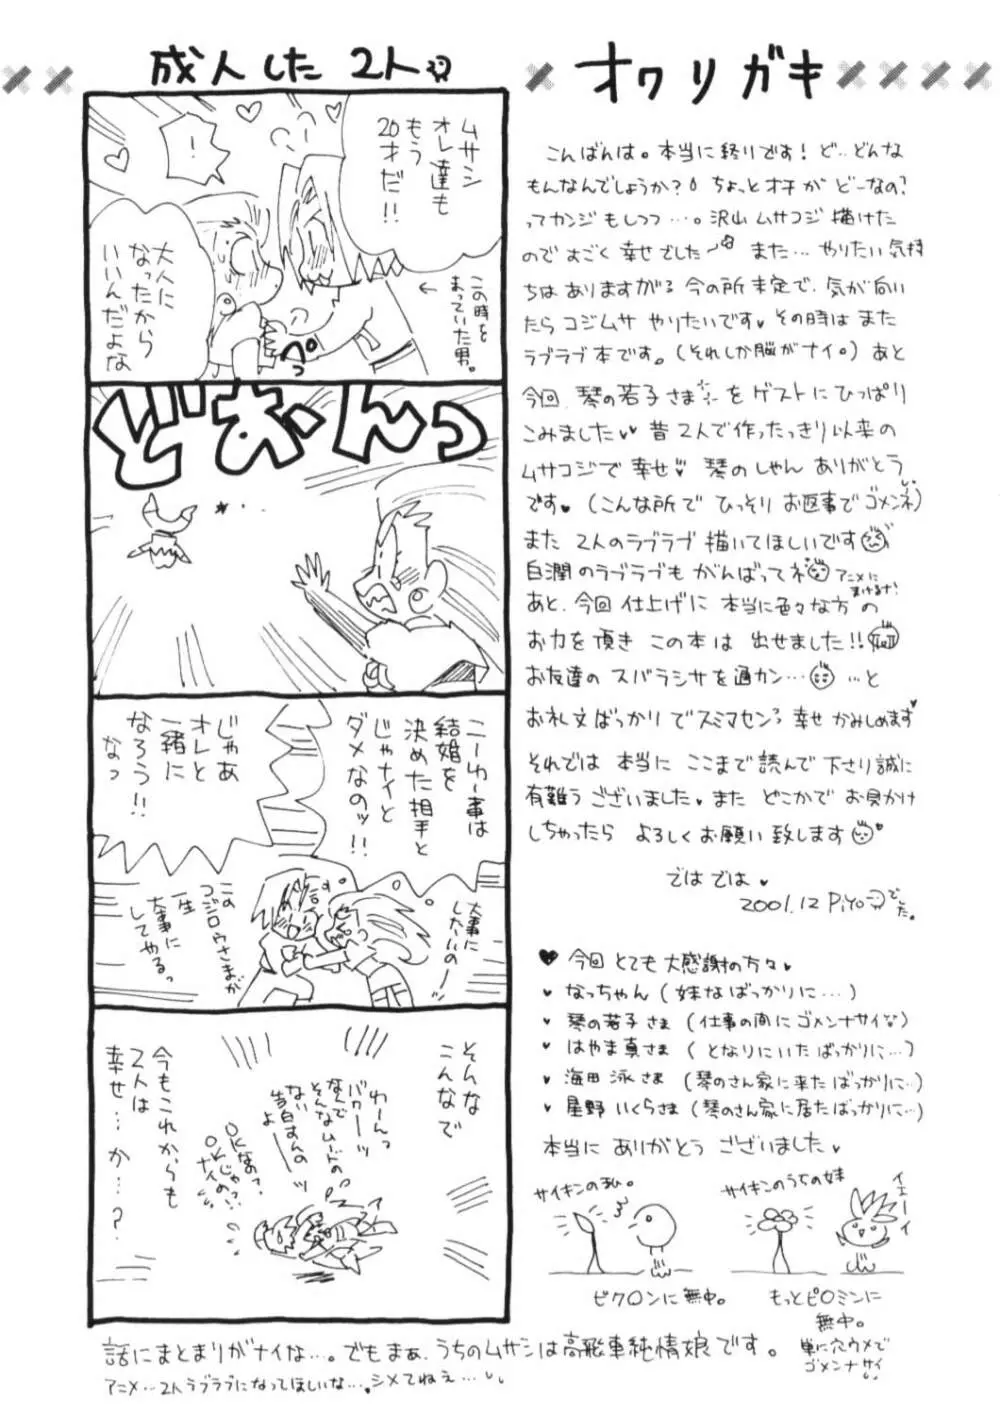 成人した 2人
ムサシ
オレ達も
もう
20才だ!!
!
大人に
なったから
いいんだよな
この時を
まっていた男。
←
ぺっ
どおーんっ
こーゆー事は
結婚を
決めた相手と
じゃナイと
ダメなのッ!!
じゃあ
オレと
一緒に
なろう!!
なっ
大事に
したいのー
この
コジロウさまが
一生
大事に
してやるっ
そんな
こんなで
わーんっ
バカーッ
なんで
そんなムードの
ない
告白すんの
よー
OKなの?
OKじゃ
ナイの!?
今もこれからも
2人は
幸せ…か…?
話にまとまりがナイな…。でもまぁ、うちのムサシは高飛車純情娘です。
アニメ…2人ラブラブになってほしいな…。シメてねぇ…
オワリガキ
こんばんは。本当に終りです! ど‥どんな
もんなんでしょうか? ちょっとオチが どーなの?
ってカンジもしつつ…。沢山 ムサコジ描けた
ので すごく 幸せでした また… やりたい気持
ちは ありますがる 今の所 未定で、気が向い
たら コジムサ やりたいです♥ その時は また
ラブラブ本です。(それしか脳がナイ。) あと
今回、琴の若子さまをゲストにひっぱり
こみました♥♥ 昔 2人で作ったっきり以来の
ムサコジで 幸せ♥ 琴のしゃん ありがとう
です♥ (こんな所で ひっそり お返事でゴメンネ)
また 2人のラブラブ 描いてほしいです
白潤のラブラブも がんばってネ アニメに
まけるな!
あと、今回 仕上げに 本当に色々な方の
お力を頂き この本は 出せました!!
お友達の スバラシサを 通カン… …と
お礼文ばっかりでスミマセン? 幸せ かみしめます♥
それでは 本当に ここまで 読んで 下さり誠に
有難う ございました。また どこかで お見かけ
しちゃったら よろしく お願い 致します♥
では では♥
2001.12 Piyoでした。
♥ 今回 とても 大感謝の方々♥
♥ なっちゃん (妹なばっかりに…)
♥ 琴の若子さま (仕事の間にゴメンナサイな)
♥ はやま真さま (となりにいたばっかりに…)
♥ 海田 泳さま (琴のさん家に来たばっかりに…)
♥ 星野 いくらさま (琴のさん家に居たばっかりに…)
本当に ありがとう ございました♥
サイキンの私。
ピク○ンに無中。
サイキンのうちの妹
イエーイ
もっとピ○ミンに
無中。
単に穴ウメで
ゴメンナサイ